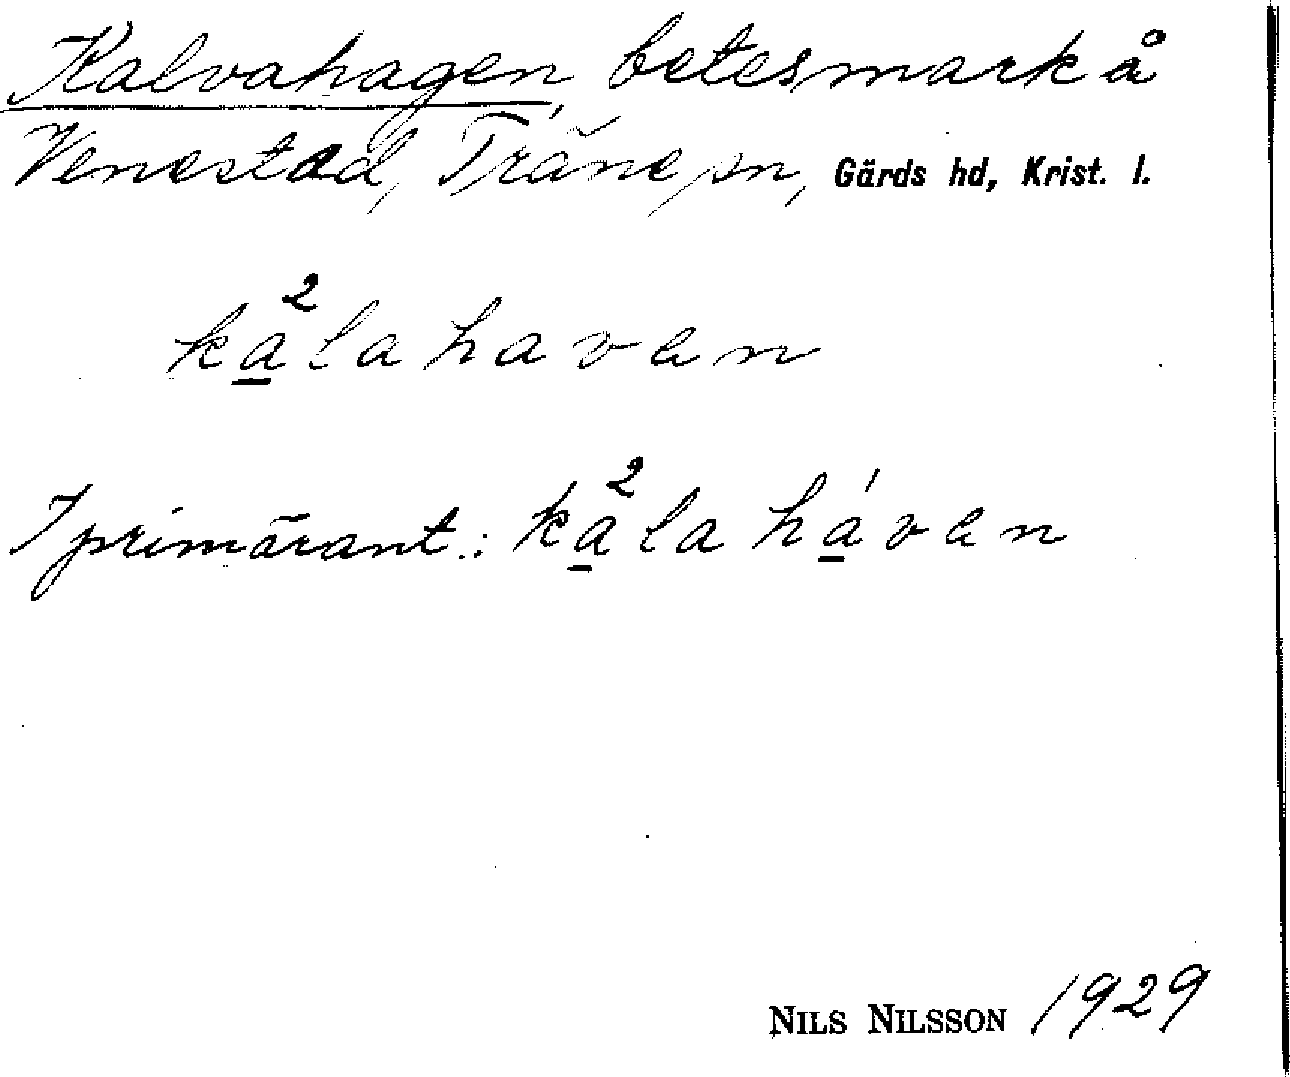 Kalvahagen, betesmark å
Venestad, Träne sn, Gärds hd, Krist. l.
ka̲²lahavan
I primärant.: ka̲²la há̲van
NILS NILSSON 1929